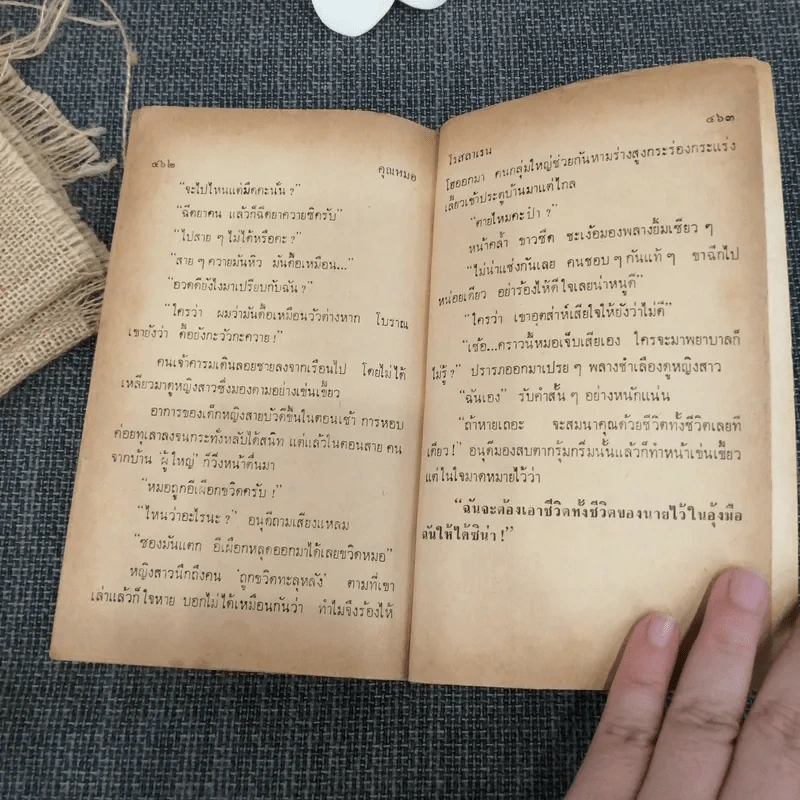 ๔๖๒
คุณหมอ
“จะไปไหนแต่มืดคะนั่น ?”
“ฉีดยาคน แล้วก็ฉีดยาควายซิครับ”
“ไปสาย ๆ ไม่ได้หรือคะ ?”
“สาย ๆ ควายมันหิว มันดื้อเหมือน...”
“อวดดียังไงมาเปรียบกับฉัน ?”
“ใครว่า ผมว่ามันดื้อเหมือนวัวต่างหาก โบราณ
เขายังว่า ดื้อยังกะวัวกะควาย !”
คนเจ้าคารมเดินลอยชายลงจากเรือนไป โดยไม่ได้
เหลียวมาดูหญิงสาวซึ่งมองตามอย่างเข่นเขี้ยว
อาการของเด็กหญิงสายบัวดีขึ้นในตอนเช้า การหอบ
ค่อยทุเลาลงจนกระทั่งหลับได้สนิท แต่แล้วในตอนสาย คน
จากบ้าน ‘ผู้ใหญ่’ ก็วิ่งหน้าตื่นมา
“หมอถูกอีเผือกขวิดครับ !”
“ไหนว่าอะไรนะ ?” อนุดีถามเสียงแหลม
“ซองมันแตก อีเผือกหลุดออกมาได้เลยขวิดหมอ”
หญิงสาวนึกถึงคน ‘ถูกขวิดทะลุหลัง’ ตามที่เขา
เล่าแล้วก็ใจหาย บอกไม่ได้เหมือนกันว่า ทำไมจึงร้องไห้
๔๖๓
โรสลาเรน
โฮออกมา คนกลุ่มใหญ่ช่วยกันหามร่างสูงกระร่องกระแร่ง
เลี้ยวเข้าประตูบ้านมาแต่ไกล
“ตายไหมคะป้า ?”
หน้าคล้ำ ขาวซีด ชะเง้อมองพลางยิ้มเซียว ๆ
“ไม่น่าแช่งกันเลย คนชอบ ๆ กันแท้ ๆ ขาฉีกไป
หน่อยเดียว อย่าร้องไห้ดีใจเลยน่าหนูดี”
“ใครว่า เขาอุตส่าห์เสียใจให้ยังว่าไม่ดี”
“เช้อ...คราวนี้หมอเจ็บเสียเอง ใครจะมาพยาบาลก็
ไม่รู้ ?” ปรารภออกมาเปรย ๆ พลางชำเลืองดูหญิงสาว
“ฉันเอง” รับคำสั้น ๆ อย่างหนักแน่น
“ถ้าหายเถอะ จะสมนาคุณด้วยชีวิตทั้งชีวิตเลยที
เดียว !” อนุดีมองสบตากรุ้มกริ่มนั้นแล้วก็ทำหน้าเข่นเขี้ยว
แต่ในใจมาดหมายไว้ว่า
“ฉันจะต้องเอาชีวิตทั้งชีวิตของนายไว้ในอุ้งมือ
ฉันให้ได้ซิน่า !”